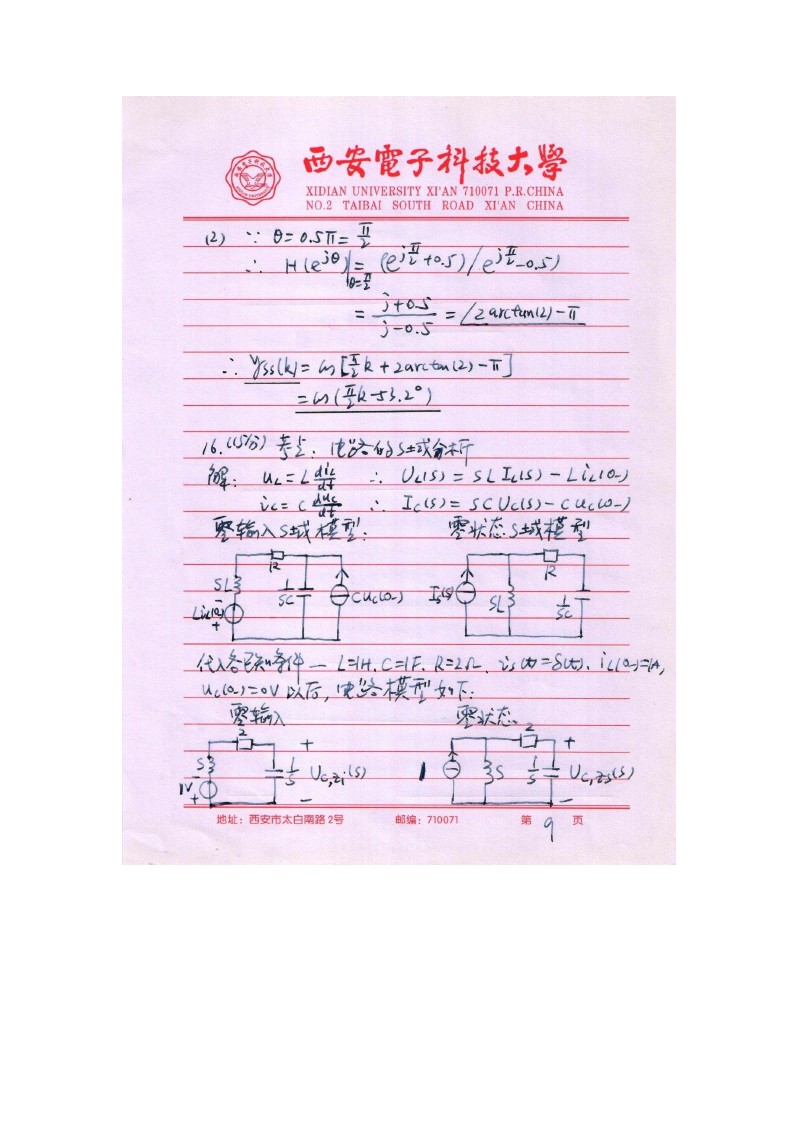 西安電子科技大學
XIDIAN UNIVERSITY XI'AN 710071 P.R.CHINA
NO.2 TAIBAI SOUTH ROAD XI'AN CHINA
(2) ∵ θ=0.5π=π/2
∴ H(e^jθ)|θ=π/2 = (e^jπ/2+0.5)/e^jπ/2-0.5)
= (j+0.5)/(j-0.5) = ∠2arctan(2)-π
∴ yss(k)=cos[π/2 k+2arctan(2)-π]
=cos(π/2 k-53.2°)
16.(15分) 考点: 电路的S域分析
解: uL=L diL/dt ∴ UL(s)=SL IL(s)-L iL(0-)
ic=C duc/dt ∴ Ic(s)=SC Uc(s)-C uc(0-)
零输入S域模型: 零状态S域模型
R R
SL 1/SC Cuc(0-) Is(s) SL 1/SC
- LiL(0-) +
代入各已知条件— L=1H, C=1F, R=2Ω, is(t)=δ(t), iL(0-)=1A,
uc(0-)=0V 以后, 电路模型如下:
零输入 零状态
2 + 2 +
S 1/S Uc,zi(s) 1 S 1/S Uc,zs(s)
- 1V + - -
地址: 西安市太白南路2号 邮编: 710071 第 9 页